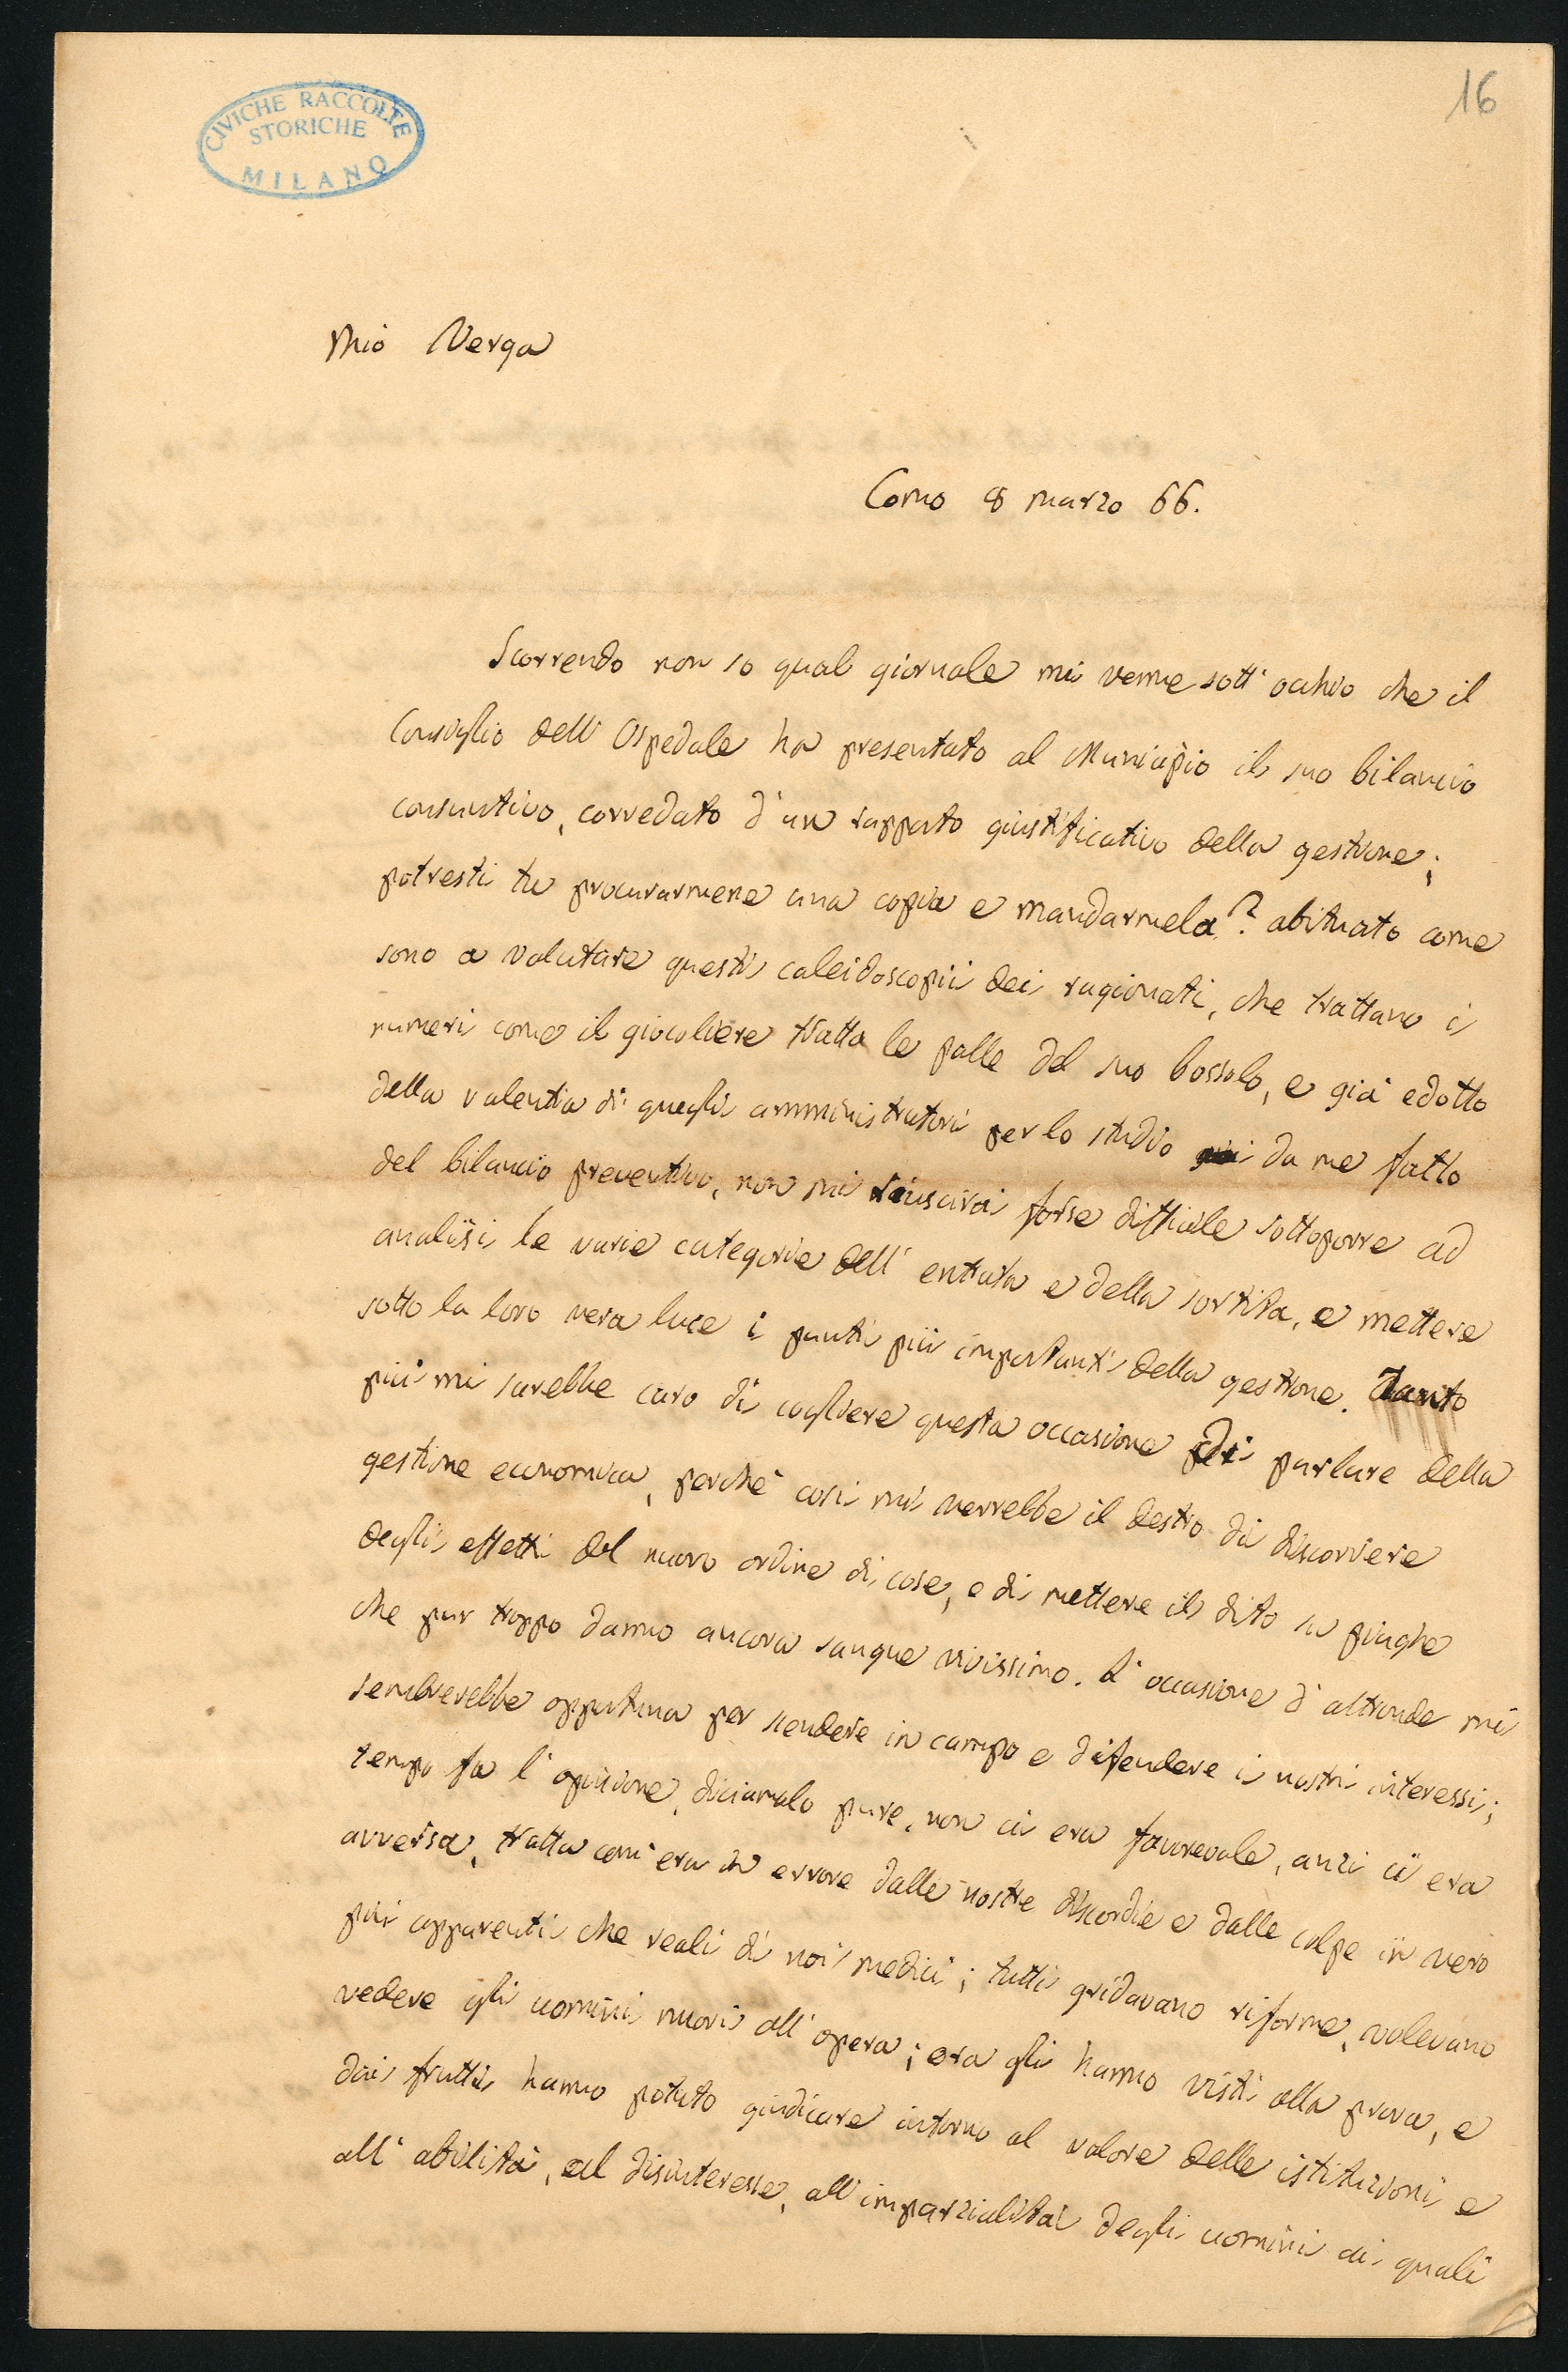 16
CIVICHE RACCOLTE
STORICHE
MILANO
Mio Verga
Como 8 marzo 66.
Scorrendo non so qual giornale mi venne sott' occhio che il
Consiglio dell' Ospedale ha presentato al Municipio il suo bilancio
consuntivo, corredato d' un rapporto giustificativo della gestione;
potresti tu procurarmene una copia e mandarmela? abituato come
sono a valutare questi caleidoscopii dei ragionati, che trattano i
numeri come il giocoliere tratta le palle del suo bossolo, e già edotto
della valentia di quegli amministratori per lo studio da me fatto
del bilancio preventivo, non mi riuscirà forse difficile sottoporre ad
analisi le varie categorie dell' entrata e della sortita, e mettere
sotto la loro vera luce i punti più importanti della gestione. Tanto
più mi sarebbe caro di cogliere questa occasione di parlare della
gestione economica, perchè così mi verrebbe il destro di discorrere
degli effetti del nuovo ordine di cose, e di mettere il dito su piaghe
che pur troppo danno ancora sangue vivissimo. L' occasione d' altronde mi
sembrerebbe opportuna per scendere in campo e difendere i nostri interessi;
tempo fa l' opinione, diciamolo pure, non ci era favorevole, anzi ci era
avversa, tratta com' era in errore dalle nostre discordie e dalle colpe in vero
più apparenti che reali di noi medici; tutti gridavano riforme, volevano
vedere gli uomini nuovi all' opera; ora gli hanno visti alla prova, e
dai frutti hanno potuto giudicare intorno al valore delle istituzioni e
all' abilità, al disinteresse, all' imparzialità degli uomini ai quali